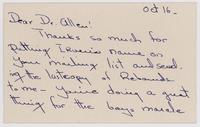 Oct 16-
Dear Dr. Allen!
Thanks so much for
putting Irvin's name on
your mailing list and send-
ing the last copy of Rebounds
to me - You're doing a great
thing for the boys morale